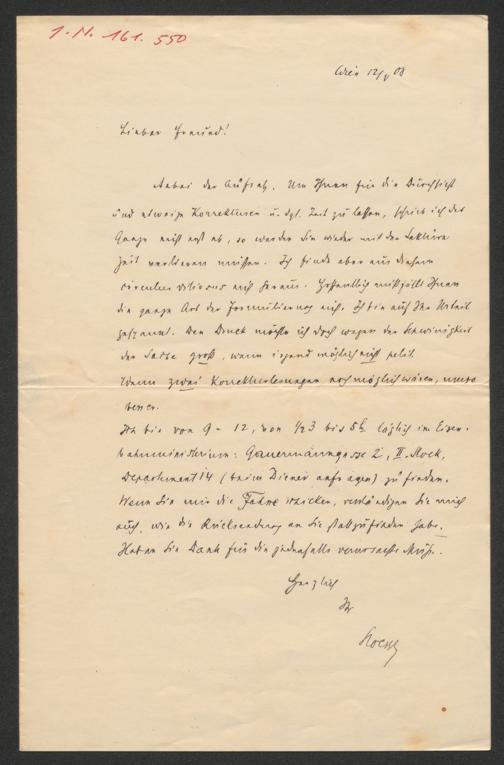 I.N. 161.550
Wien 12/V 08
Lieber Freund!
Anbei der Aufsatz. Um Ihnen für die Durchsicht
und etwaige Korrekturen u. dgl. Zeit zu lassen, schrieb ich das
Ganze nicht erst ab, so werden Sie wieder mit der Lektüre
Zeit verlieren müssen. Ich finde aber aus diesem
circulus vitiosus nicht heraus. Hoffentlich mißfällt Ihnen
die ganze Art der Formulierung nicht. Ich bin auf Ihr Urteil
gespannt. Den Druck möchte ich doch wegen der Schwierigkeit
der Sache groß, wenn irgend möglich nicht petit.
Wenn zwei Korrekturlesungen noch möglich wären, umso
besser.
Ich bin von 9 - 12, von 1/2 3 bis 5h täglich im Eisen-
bahnministerium: Gauermanngasse 2, II. Stock,
Departement 14 (beim Diener anfragen) zu finden.
Wenn Sie mir die Fahne schicken, verständigen Sie mich
auch, wie die Rücksendung an Sie stattzufinden habe.
Haben Sie Dank für die jedenfalls verursachte Mühe.
Herzlich
Ihr